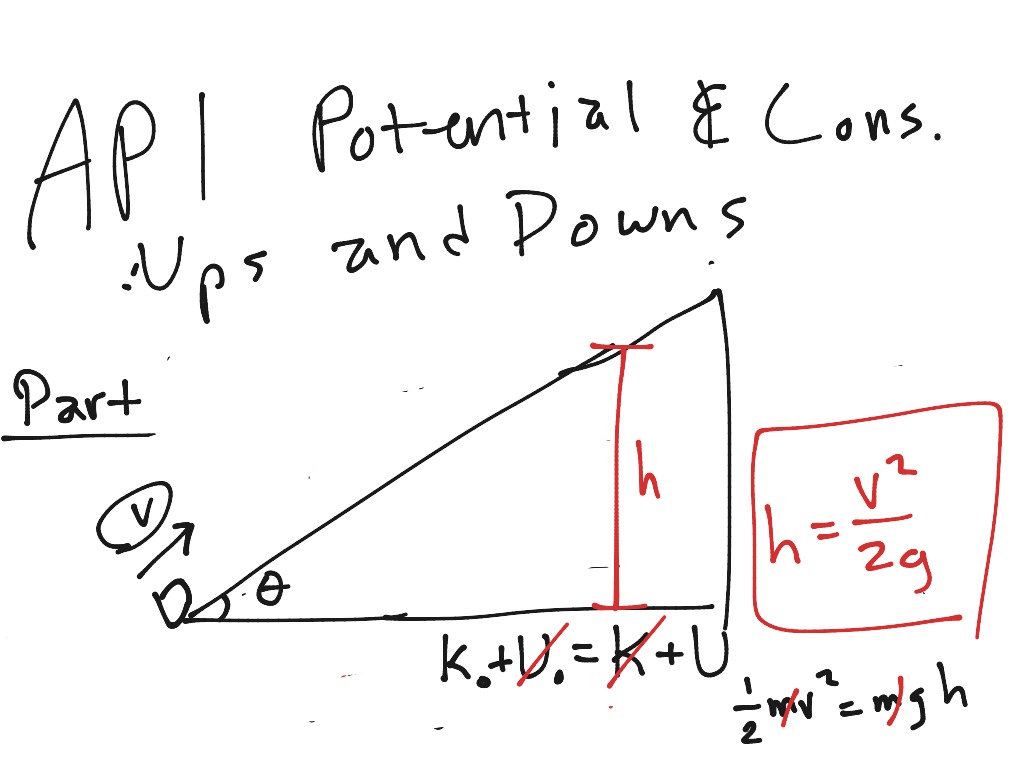 AP1 Potential & Cons.
:Ups and Downs
Part
V
θ
h
h = v²/2g
K₀ + U₀ = K + U
½ mv² = mgh